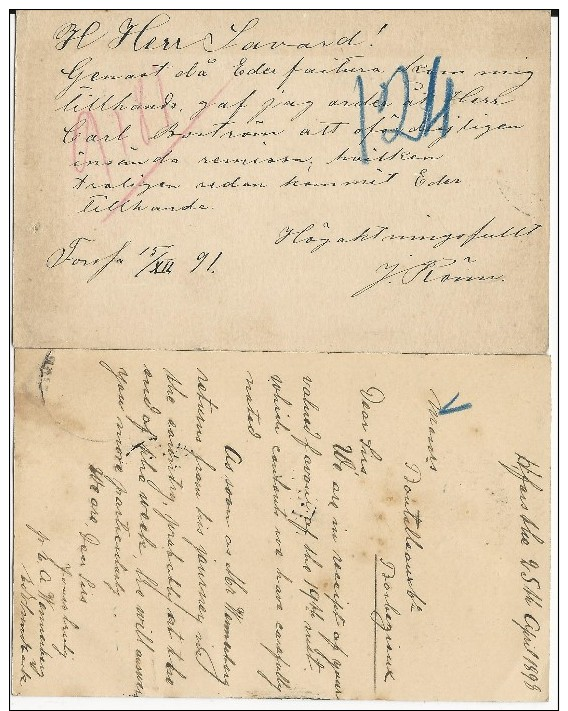 H Herr Savard!
Genast då Eder faktura kom mig
tillhanda, gaf jag order åt Herr
Carl Boström att ofördröjligen
insända remissa, hvilken
troligen redan kommit Eder
tillhanda.
Högaktningsfullt
Forssa 15/XII 91.
J. Rönn.
124
the 25th April 1898
Messrs
Boutelleau &
Barbezieux
Dear Sirs,
We are in receipt of your
valued favour of the 19th inst.
which content we have carefully
noted.
As soon as Mr Wennerberg
returns from his journey in
the country, probably at the
end of the week, he will answer
you more particularly.
We are, Dear Sirs
Yours truly
p. A. Wennerberg